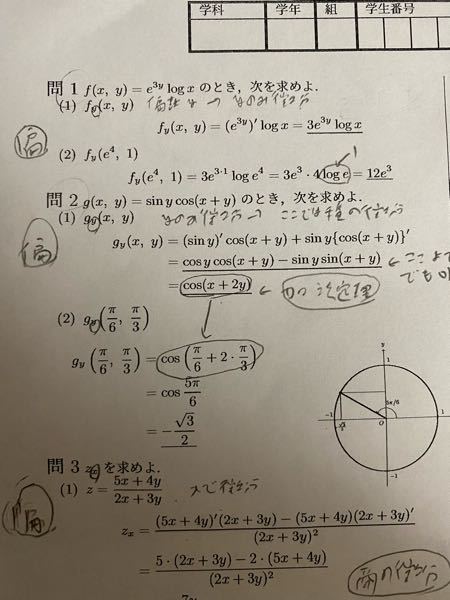 学科 学年 組 学生番号
問 1 f(x, y) = e^{3y} log x のとき, 次を求めよ.
(1) f_y(x, y)
f_y(x, y) = (e^{3y})′ log x = 3e^{3y} log x
偏
(2) f_y(e^4, 1)
1
f_y(e^4, 1) = 3e^{3·1} log e^4 = 3e^3 · 4 log e = 12e^3
問 2 g(x, y) = sin y cos(x + y) のとき, 次を求めよ.
(1) g_y(x, y)
偏
g_y(x, y) = (sin y)′ cos(x + y) + sin y{cos(x + y)}′
= cos y cos(x + y) − sin y sin(x + y) ←
= cos(x + 2y) ← 加法定理
(2) g_y(π/6, π/3)
g_y(π/6, π/3) = cos(π/6 + 2 · π/3)
= cos 5π/6
= −√3/2
y
1
5π/6
-1 O 1 x
-1
問 3 z_x を求めよ.
(1) z = (5x + 4y)/(2x + 3y) xで微分
偏
z_x = {(5x + 4y)′(2x + 3y) − (5x + 4y)(2x + 3y)′}/(2x + 3y)^2
= {5 · (2x + 3y) − 2 · (5x + 4y)}/(2x + 3y)^2
商の微分
7y